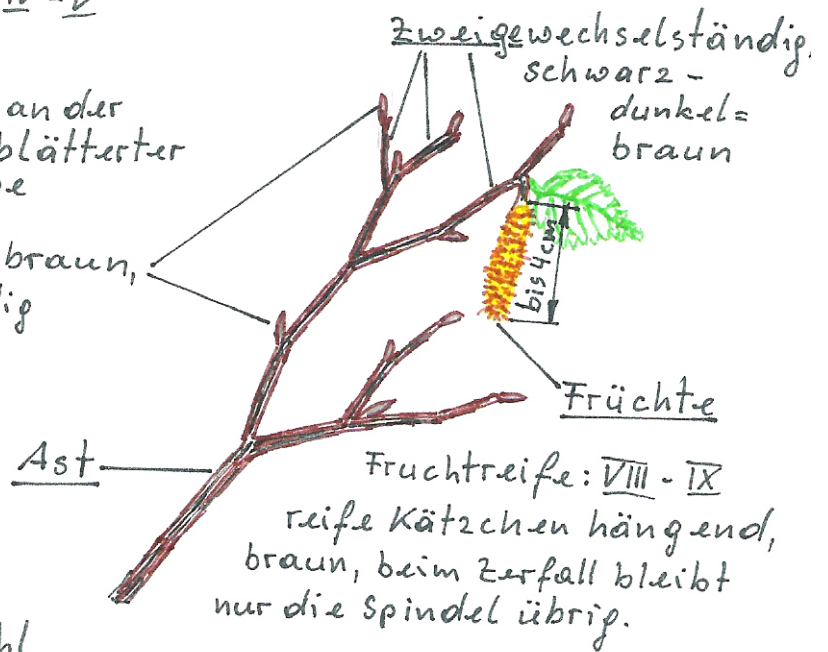 IV - V
Zweige wechselständig,
schwarz-
dunkel=
braun
an der
blätterter
e
braun,
ig
bis 4 cm
Früchte
Ast
Fruchtreife: VIII - IX
reife Kätzchen hängend,
braun, beim Zerfall bleibt
nur die Spindel übrig.
hl